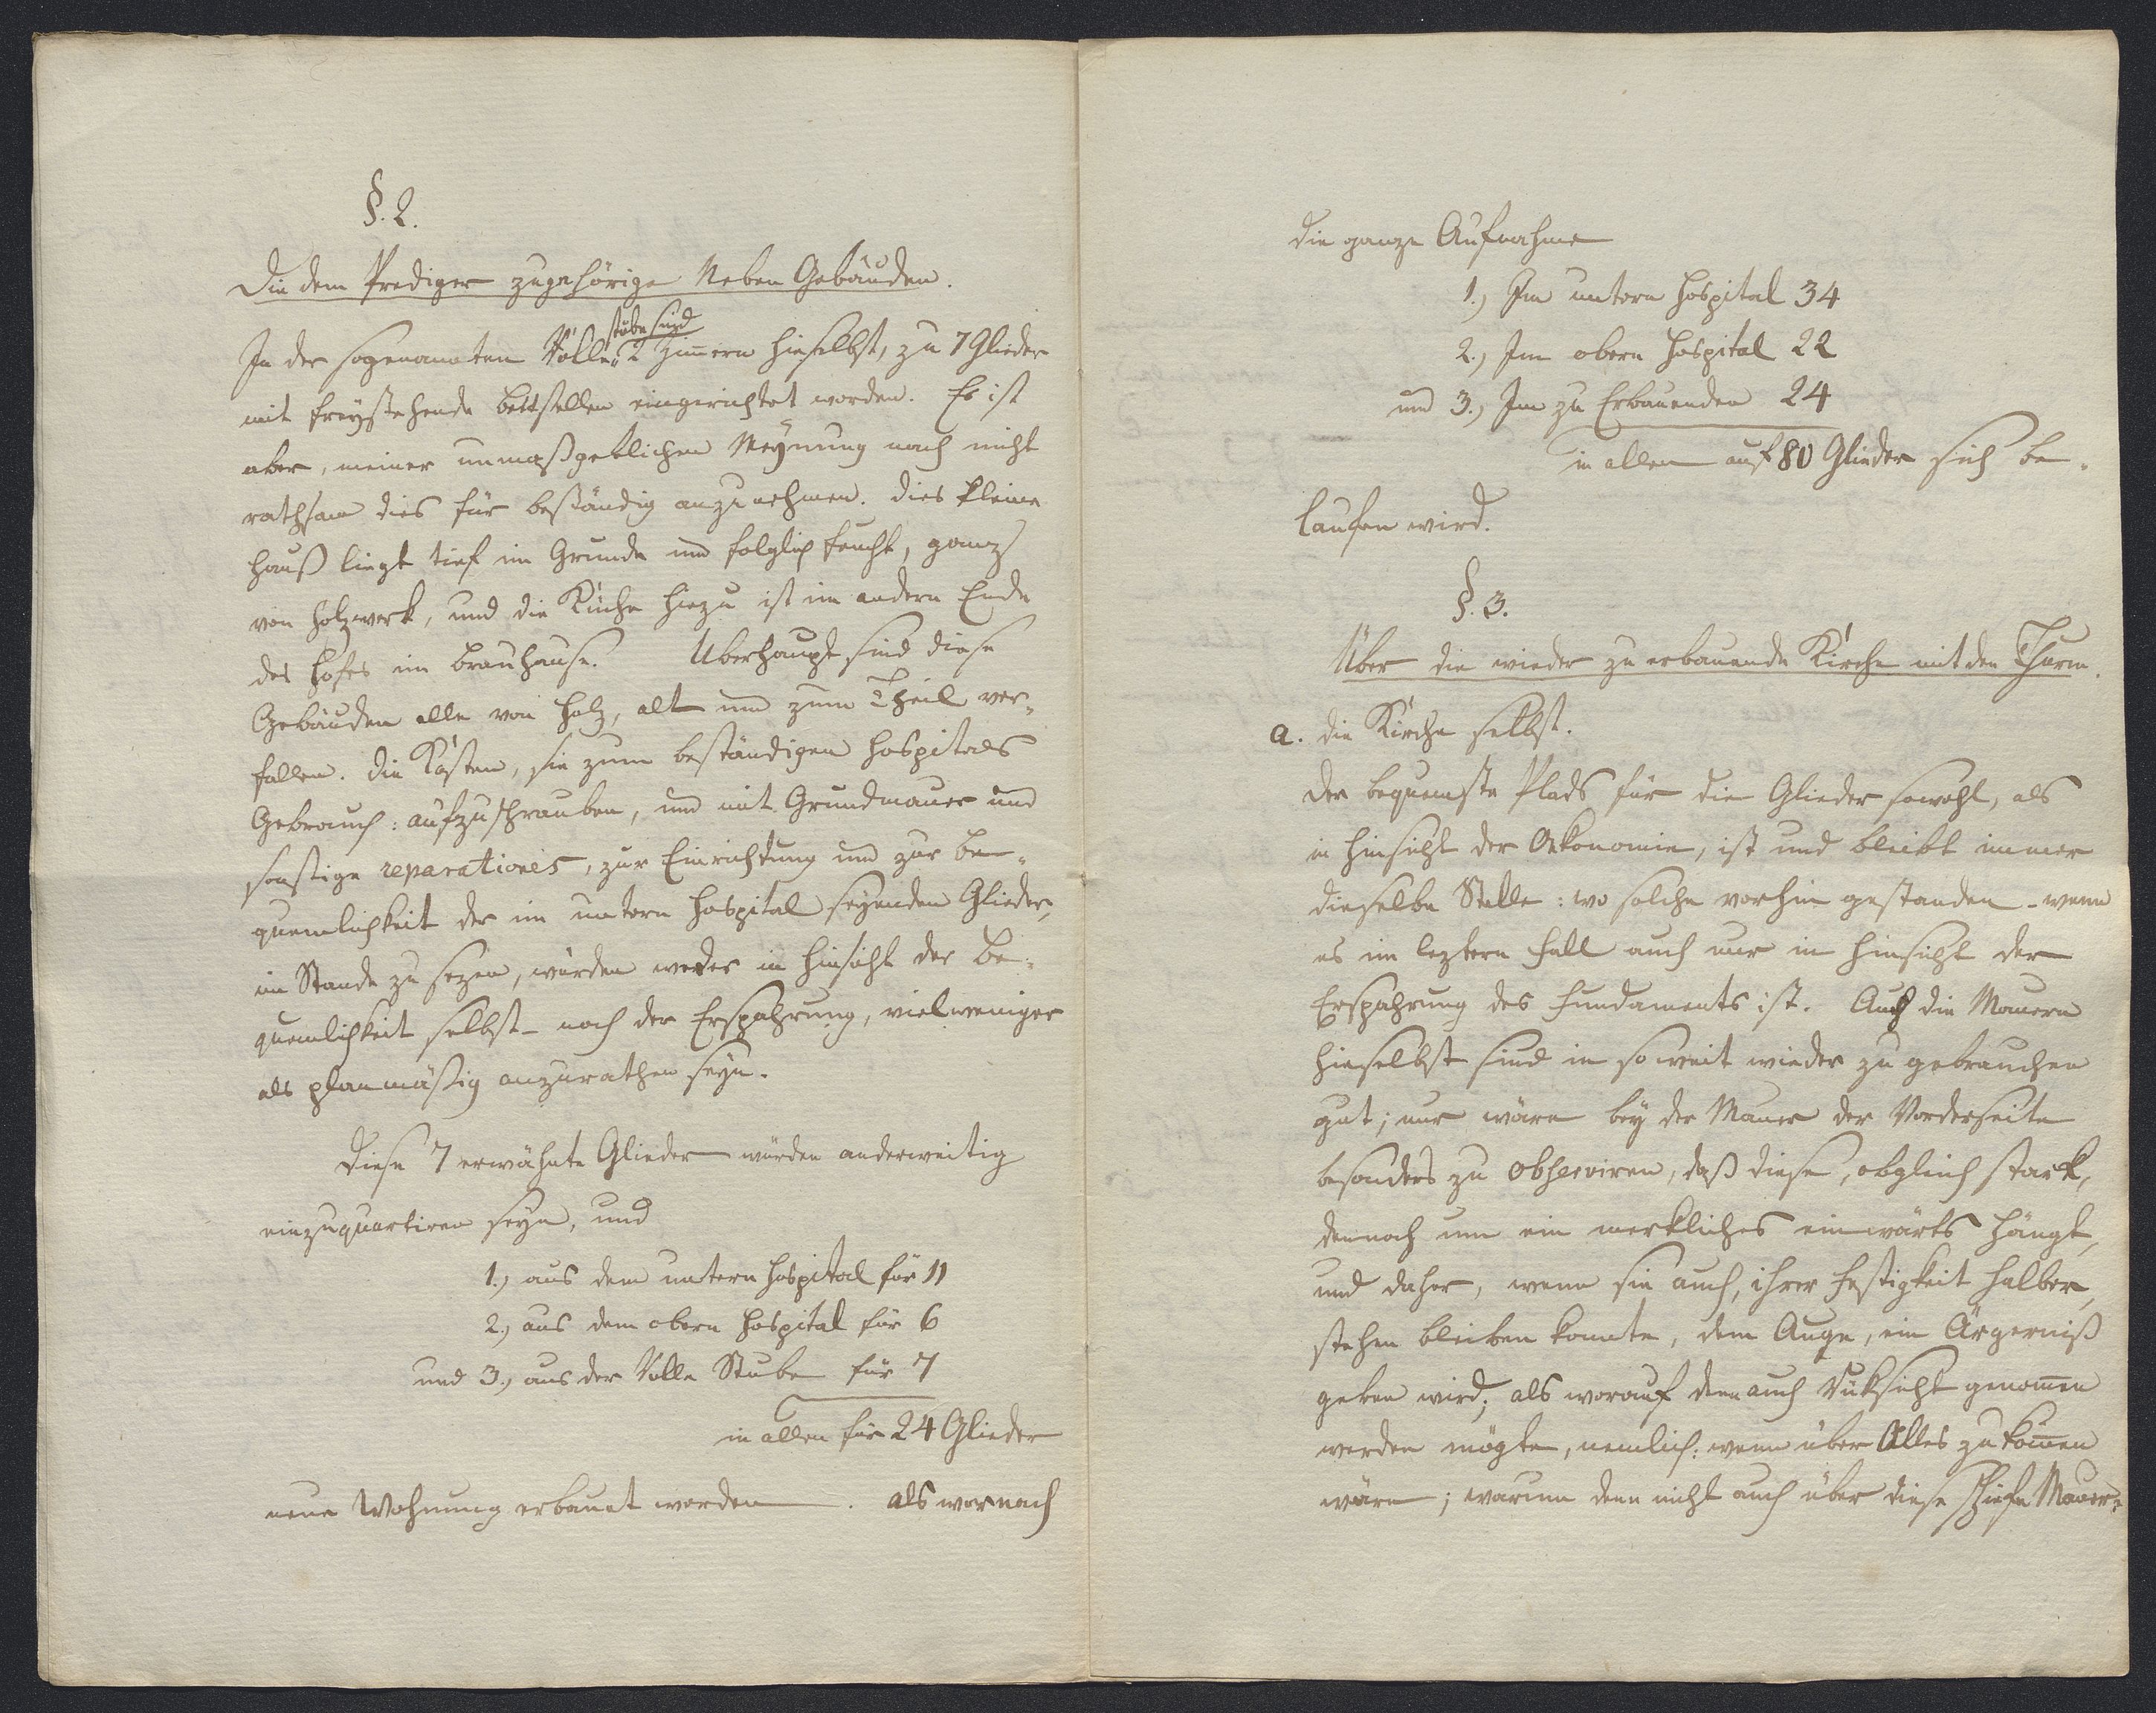 §. 2.
Die dem Prediger zugehörige Neben Gebäuden.
stube sind
In der sogenannten Völler 2 Zimmern hieselbst, zu 7 Glieder
mit freystehende Bettstellen eingerichtet worden. Es ist
aber, meiner unmaßgeblichen Meynung nach nicht
rathsam dies für beständig anzunehmen. Dies kleine
Hauß liegt tief im Grunde und folglich feucht, ganz
von Holzwerk, und die Küche hiezu ist im andern Ende
des Hofes im Brauhause. Überhaupt sind diese
Gebäuden alle von Holz, alt und zum Theil ver-
fallen. Die Kosten, sie zum beständigen Hospitals
Gebrauch: aufzuschrauben, und mit Grundmauer und
sonstige reparationes, zur Einrichtung und zur Be-
quemlichkeit der im untern Hospital seyenden Glieder,
im Stande zu sezen, würden weder in Hinsicht der Be-
quemlichkeit selbst – noch der Erspahrung, vielweniger
als planmäßig anzurathen seyn.
Diese 7 erwähnte Glieder würden anderweitig
einzuquartiren seyn, und
1.) aus dem untern Hospital für 11
2.) aus dem obern Hospital für 6
und 3.) aus der Völle Stube für 7
in allen für 24 Glieder
neue Wohnung erbauet werden. als wornach
die ganze Aufnahme
1.) Im untern Hospital 34
2.) Im obern Hospital 22
und 3.) Im zu Erbauenden 24
in allem auf 80 Glieder sich be-
laufen wird.
§. 3.
Über die wieder zu erbauende Kirche mit den Thurm.
a. die Kirche selbst.
Der bequemste Plads für die Glieder sowohl, als
in Hinsicht der Oekonomie, ist und bleibt immer
dieselbe Stelle: wo solche vorhin gestanden – wenn
es im leztern Fall auch nur in Hinsicht der
Erspahrung des Fundaments ist. Auch die Mauern
hieselbst sind in so weit wieder zu gebrauchen
gut; nur wäre bey der Mauer der Vorderseite
besonders zu observiren, daß diese, obgleich stark,
dennoch um ein merkliches einwärts hängt,
und daher, wenn sie auch, ihrer Festigkeit halber,
stehen bleiben konnte, dem Auge, ein Ärgerniß
geben wird; als worauf denn auch Rüksicht genommen
werden mögte, nemlich: wenn über Alles zu kommen
wäre; warum denn nicht auch über diese schiefe Mauer?